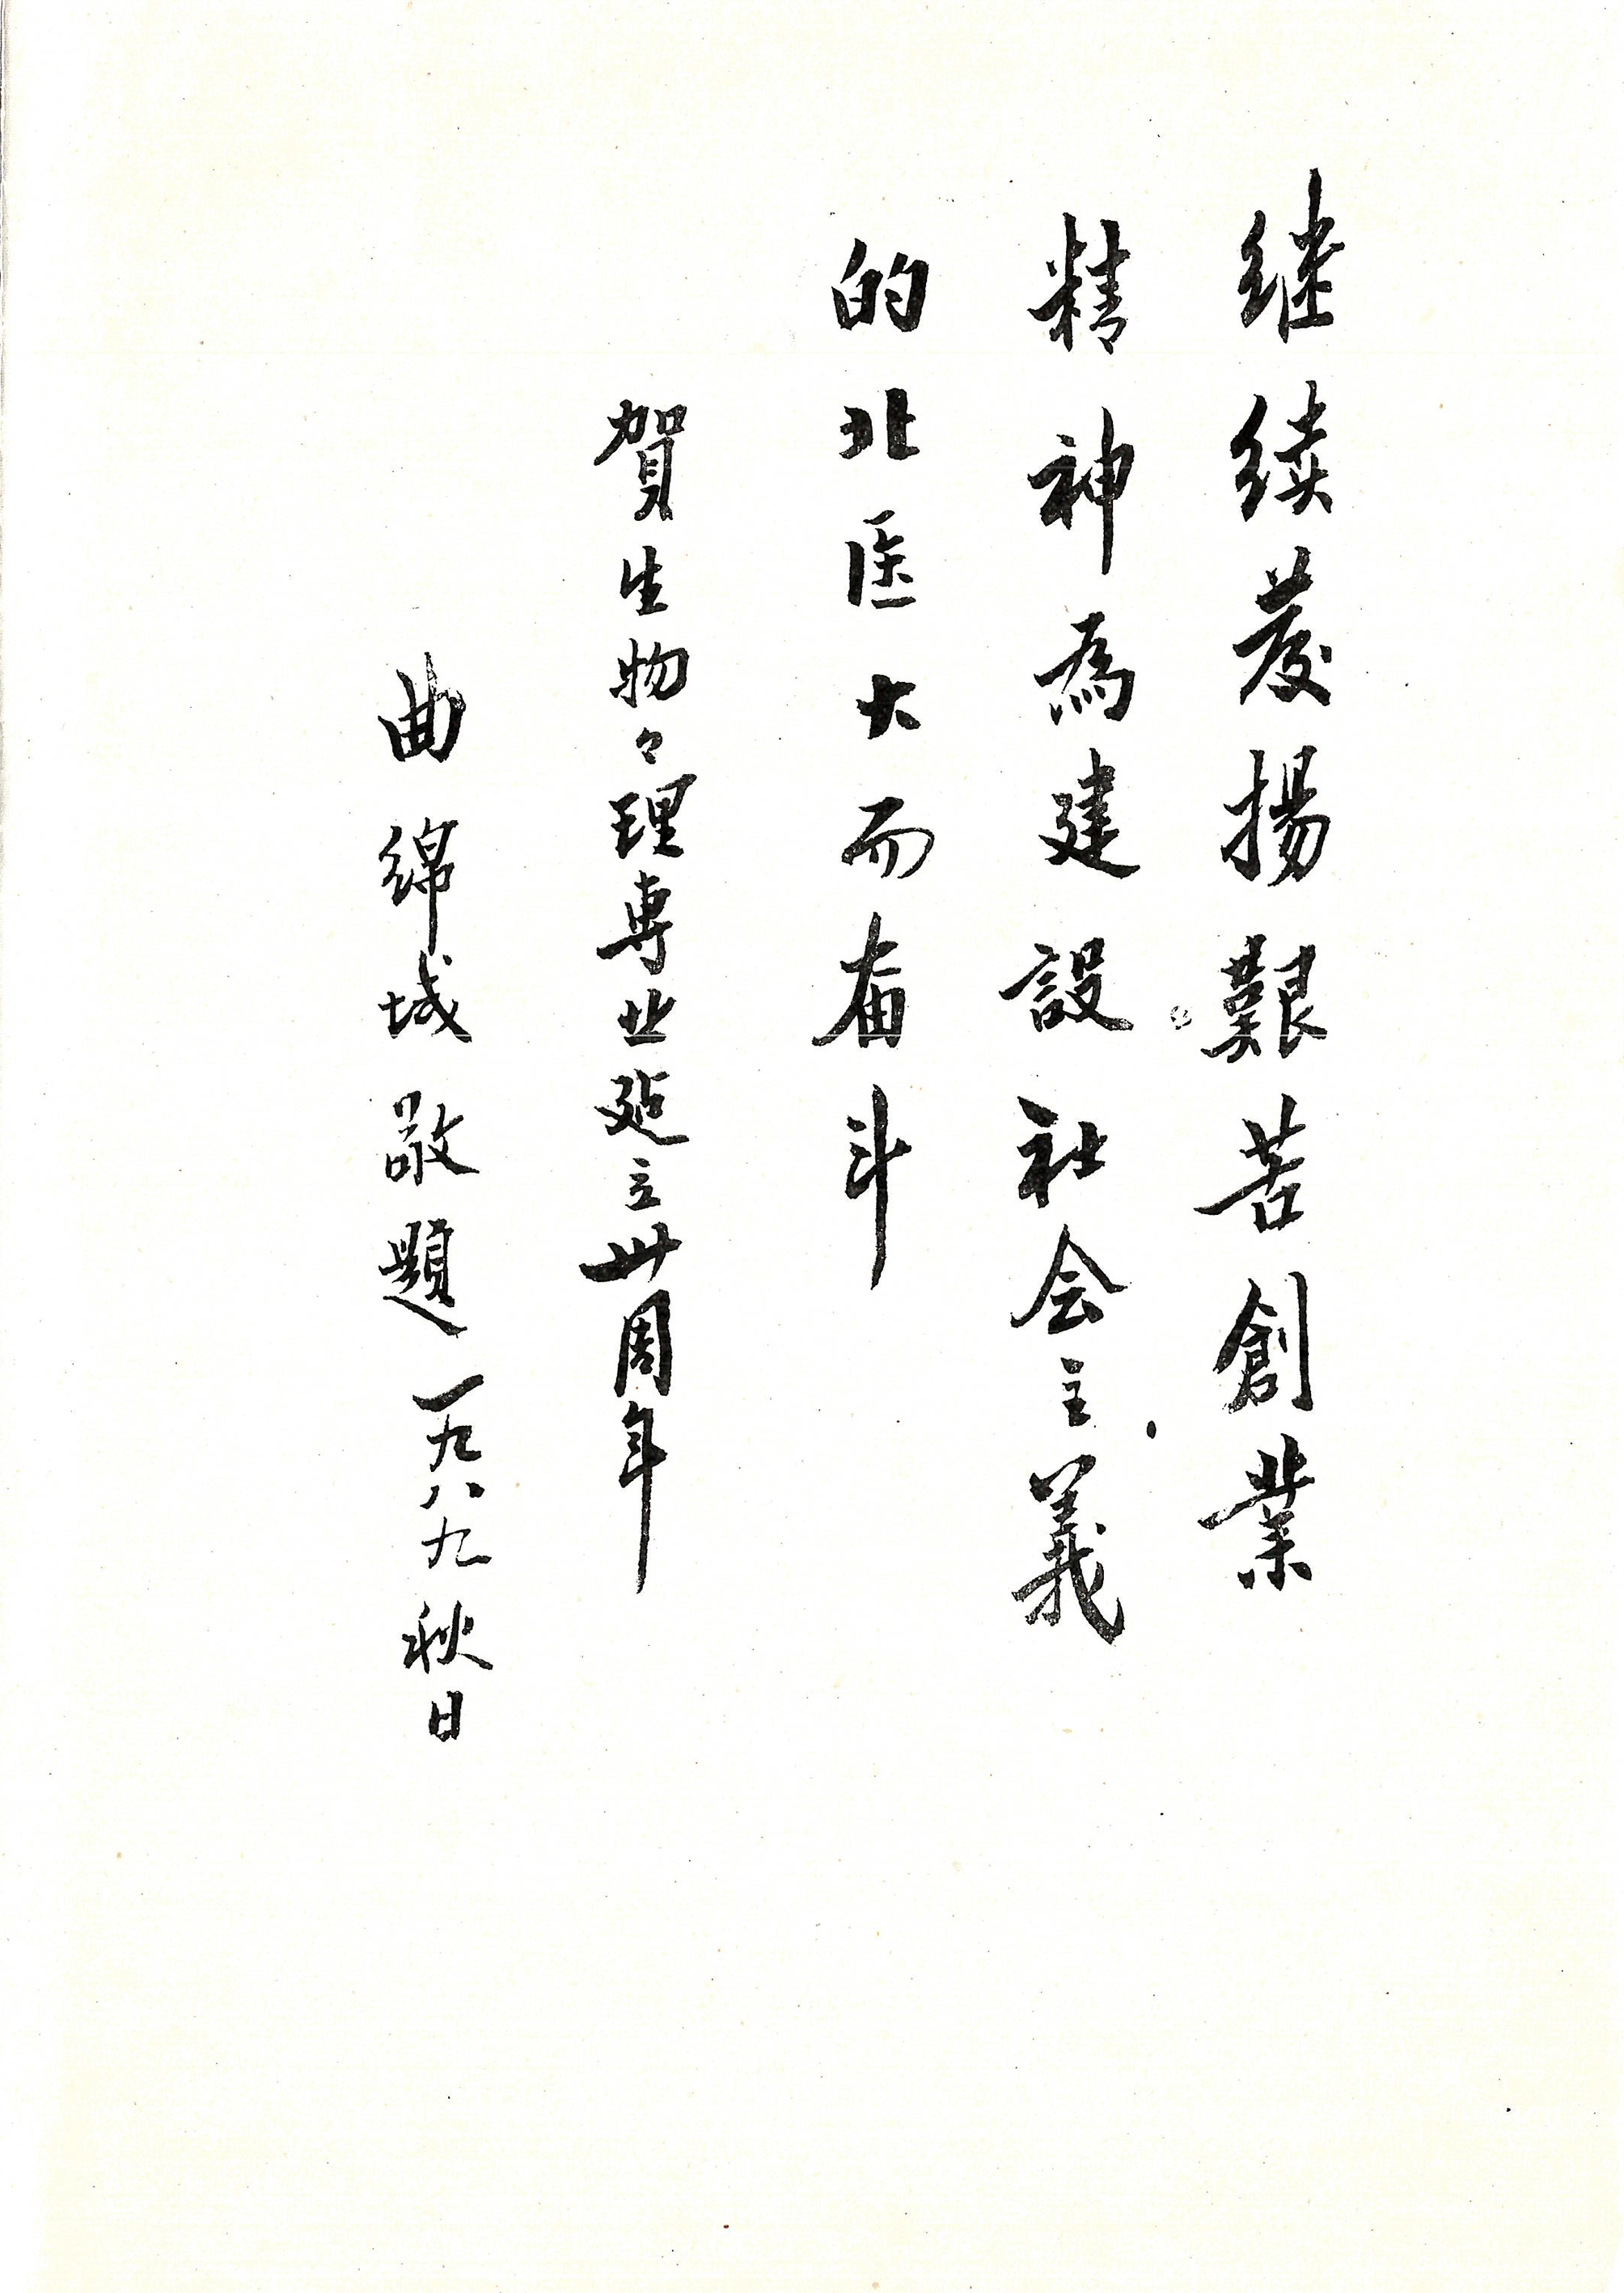 继续发揚艱苦創業
精神為建設社会主義
的北医大而奋斗
賀生物々理專业建立卅周年
曲綿城敬題一九八九秋日